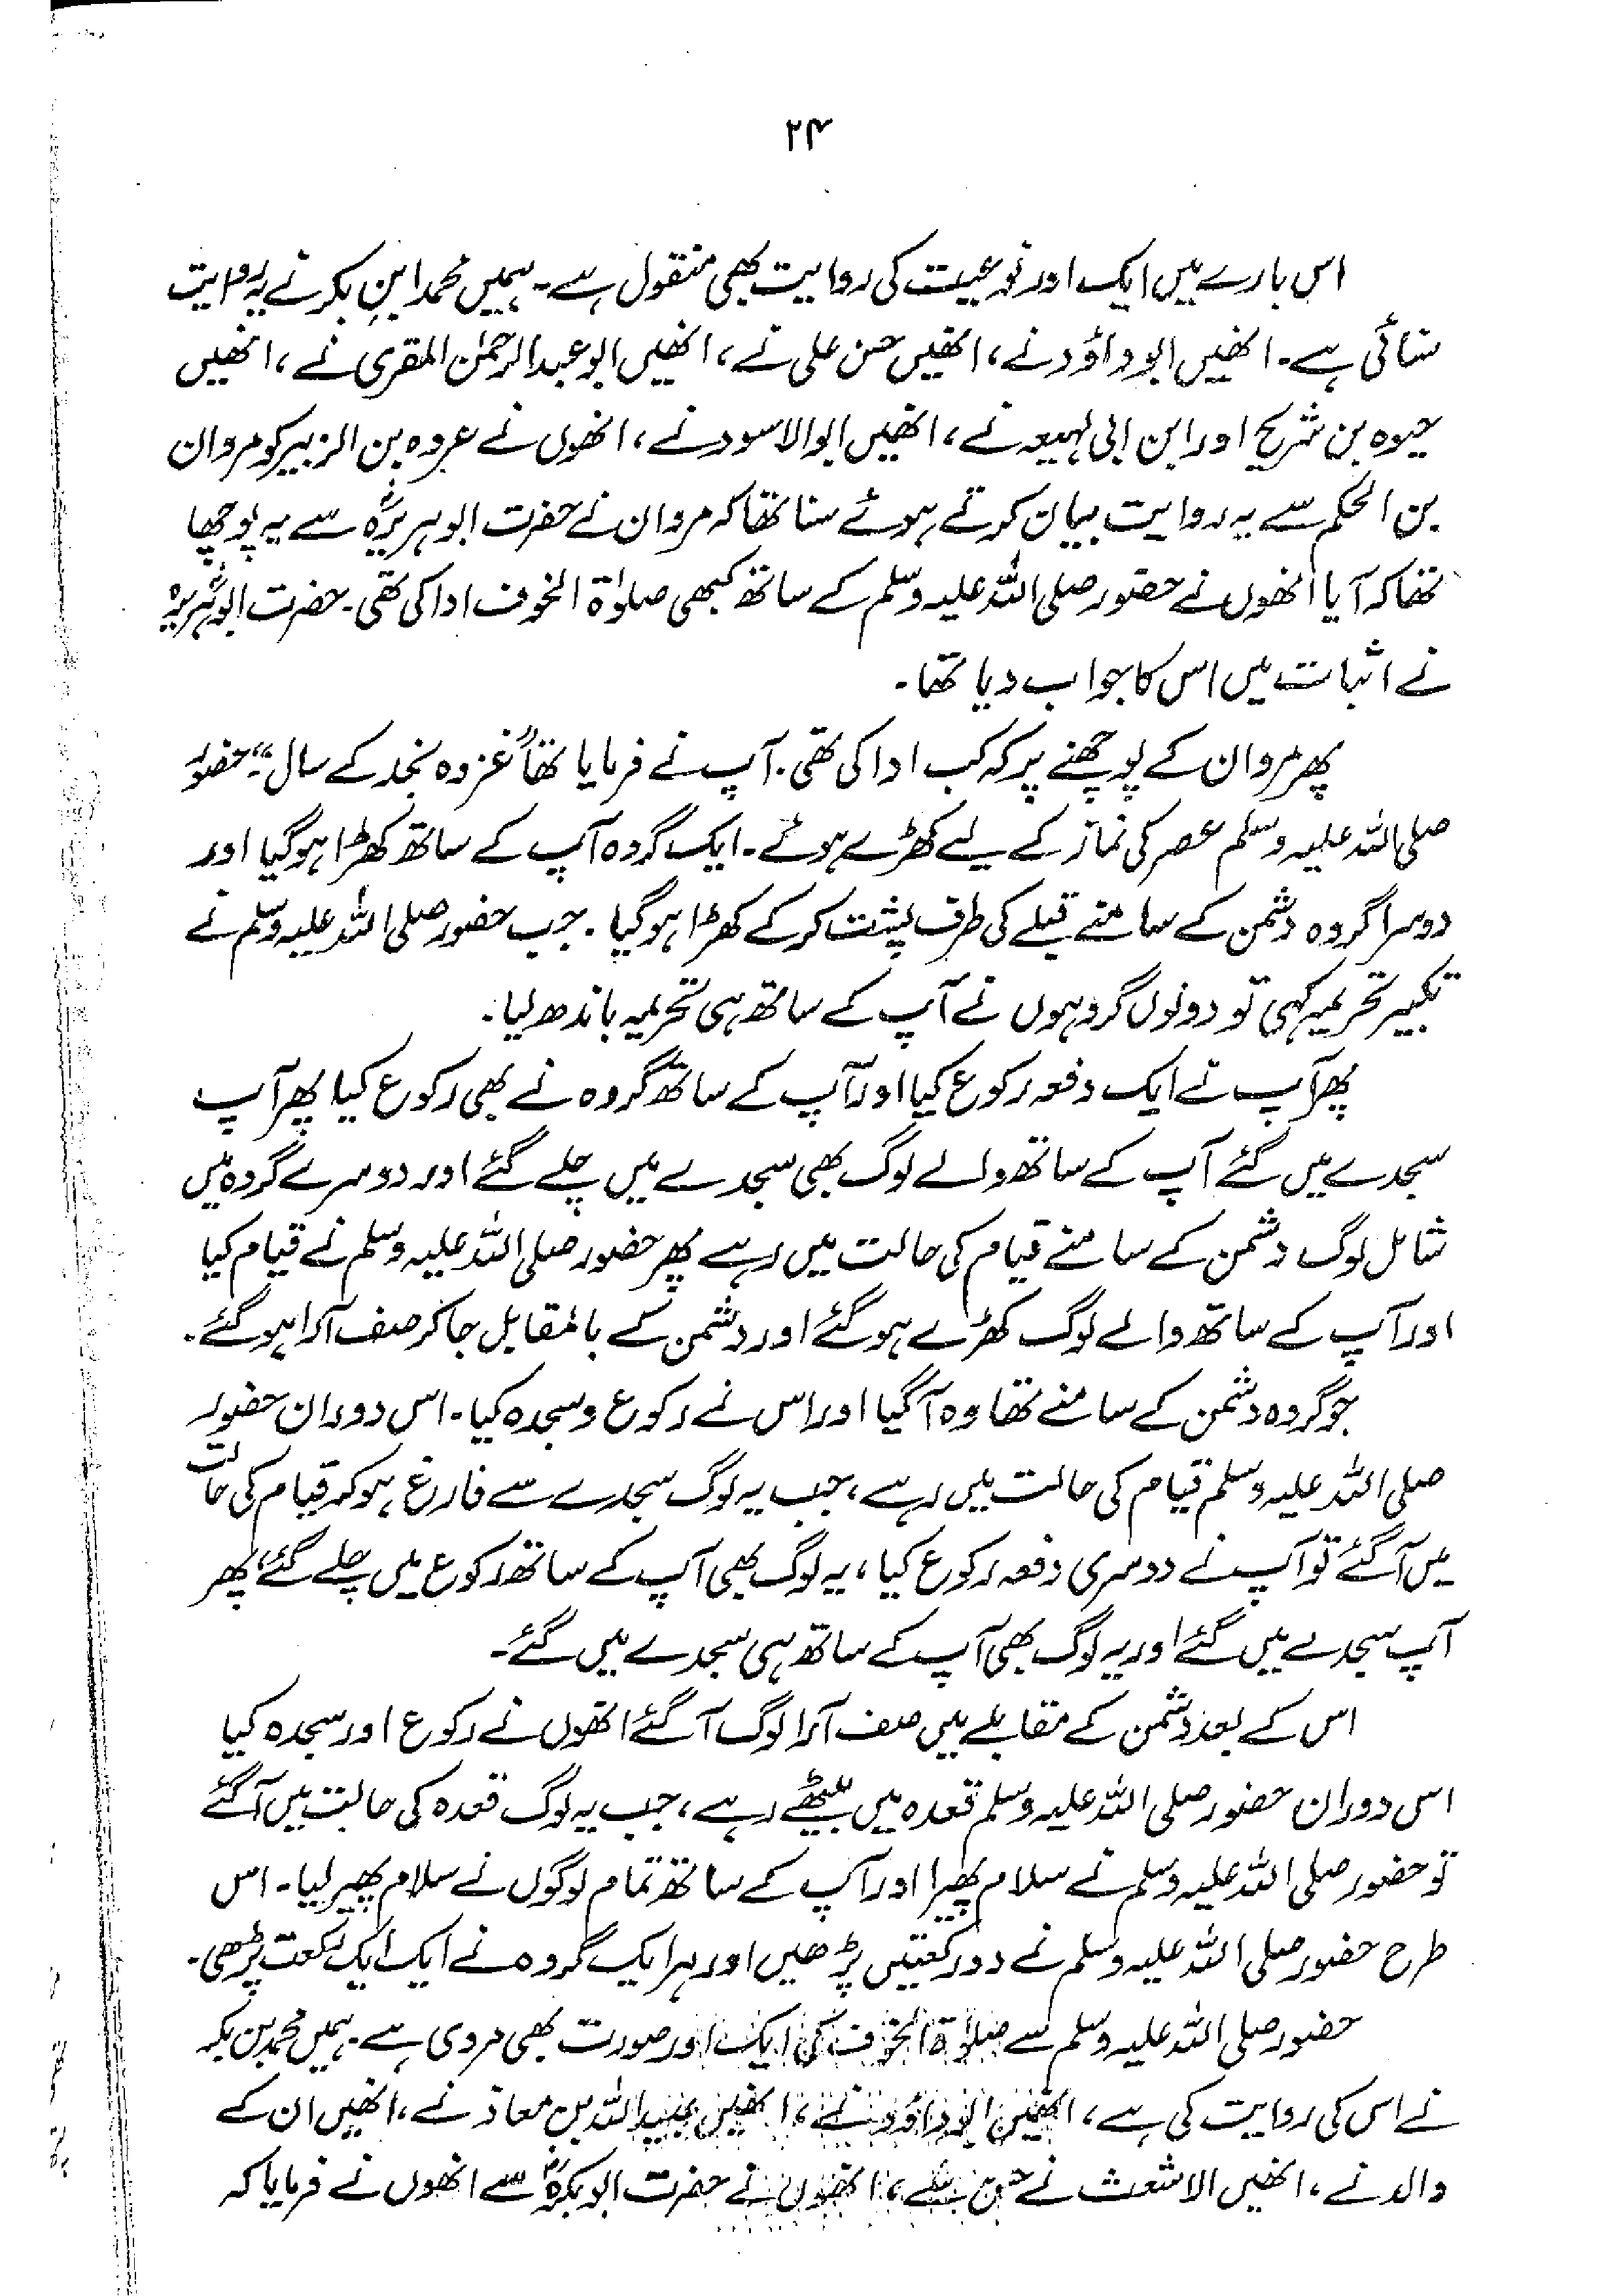 ۲۴
اس بارے میں ایک اور نوعیت کی روایت بھی منقول ہے۔ ہمیں محمد ابنِ بکر نے یہ روایت
سنائی ہے۔ انھیں ابوداؤد نے، انھیں حسن علی نے، انھیں ابوعبدالرحمٰن المقری نے، انھیں
حیوہ بن شریح اور ابن ابی لہیعہ نے، انھیں ابوالاسود نے، انھوں نے عروہ بن الزبیر کو مروان
بن الحکم سے یہ روایت بیان کرتے ہوئے سنا تھا کہ مروان نے حضرت ابوہریرہؓ سے یہ پوچھا
تھا کہ آیا انھوں نے حضور صلی اللہ علیہ وسلم کے ساتھ کبھی صلوٰۃ الخوف ادا کی تھی۔ حضرت ابوہریرہؓ
نے اثبات میں اس کا جواب دیا تھا۔
پھر مروان کے پوچھنے پر کہ کب ادا کی تھی۔ آپ نے فرمایا تھا "غزوہ نجد کے سال"۔ حضور
صلی اللہ علیہ وسلم عصر کی نماز کے لیے کھڑے ہوئے۔ ایک گروہ آپ کے ساتھ کھڑا ہوگیا اور
دوسرا گروہ دشمن کے سامنے قبلے کی طرف پشت کرکے کھڑا ہوگیا۔ جب حضور صلی اللہ علیہ وسلم نے
تکبیر تحریمہ کہی تو دونوں گروہوں نے آپ کے ساتھ ہی تحریمہ باندھ لیا۔
پھر آپ نے ایک دفعہ رکوع کیا اور آپ کے ساتھ گروہ نے بھی رکوع کیا پھر آپ
سجدے میں گئے آپ کے ساتھ والے لوگ بھی سجدے میں چلے گئے اور دوسرے گروہ میں
شامل لوگ دشمن کے سامنے قیام کی حالت میں رہے پھر حضور صلی اللہ علیہ وسلم نے قیام کیا
اور آپ کے ساتھ والے لوگ کھڑے ہوگئے اور دشمن کے بالمقابل جاکر صف آرا ہوگئے۔
جو گروہ دشمن کے سامنے تھا وہ آگیا اور اس نے رکوع و سجدہ کیا۔ اس دوران حضور
صلی اللہ علیہ وسلم قیام کی حالت میں رہے، جب یہ لوگ سجدے سے فارغ ہوکر قیام کی حالت
میں آگئے تو آپ نے دوسری دفعہ رکوع کیا، یہ لوگ بھی آپ کے ساتھ رکوع میں چلے گئے، پھر
آپ سجدے میں گئے اور یہ لوگ بھی آپ کے ساتھ ہی سجدے میں گئے۔
اس کے بعد دشمن کے مقابلے میں صف آرا لوگ آگئے انھوں نے رکوع اور سجدہ کیا
اس دوران حضور صلی اللہ علیہ وسلم قعدہ میں بیٹھے رہے، جب یہ لوگ قعدہ کی حالت میں آگئے
تو حضور صلی اللہ علیہ وسلم نے سلام پھیرا اور آپ کے ساتھ تمام لوگوں نے سلام پھیر لیا۔ اس
طرح حضور صلی اللہ علیہ وسلم نے دو رکعتیں پڑھیں اور ہر ایک گروہ نے ایک ایک رکعت پڑھی۔
حضور صلی اللہ علیہ وسلم سے صلوٰۃ الخوف کی ایک اور صورت بھی مروی ہے۔ ہمیں محمد بن بکر
نے اس کی روایت کی ہے، انھیں ابوداؤد نے، انھیں عبیداللہ بن معاذ نے، انھیں ان کے
والد نے، انھیں الاشعث نے حسن سے، انھوں نے حضرت ابوبکرہؓ سے انھوں نے فرمایا کہ